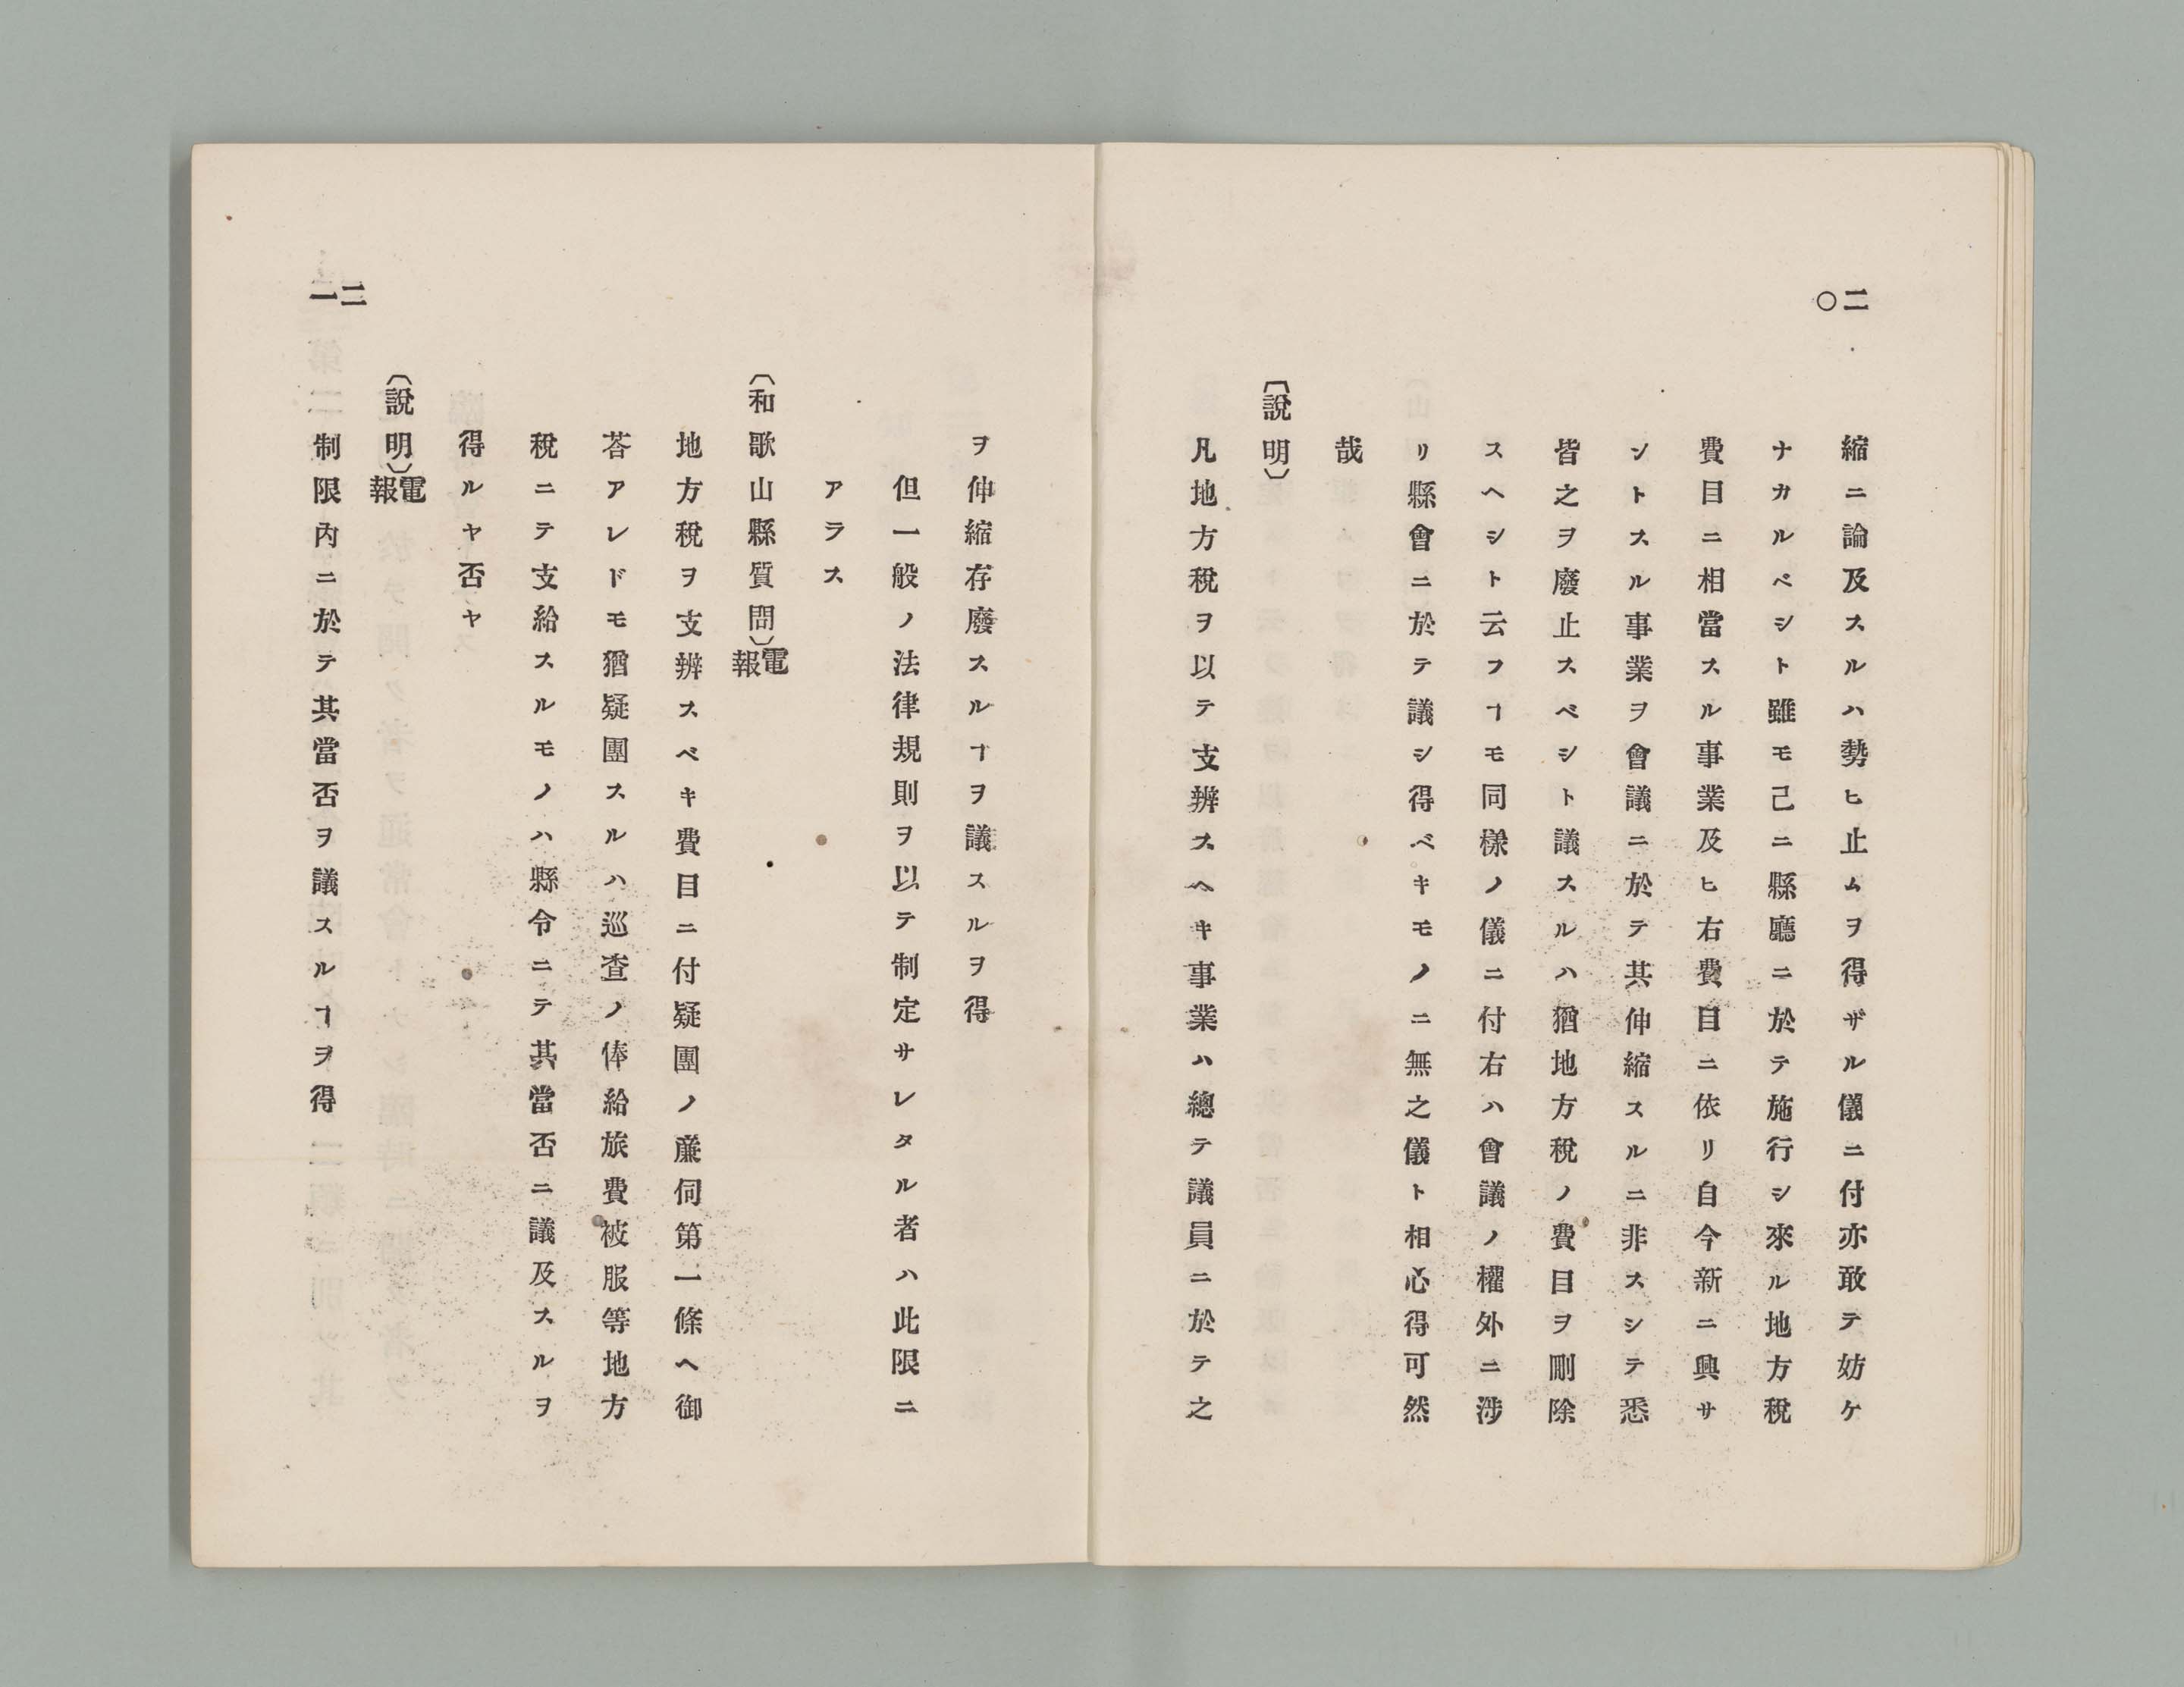 二〇
縮ニ論及スルハ勢ヒ止ムヲ得ザル儀ニ付亦敢テ妨ケ
ナカルベシト雖モ己ニ縣廳ニ於テ施行シ來ル地方稅
費目ニ相當スル事業及ヒ右費目ニ依リ自今新ニ興サ
ントスル事業ヲ會議ニ於テ其伸縮スルニ非スシテ悉
皆之ヲ廢止スベシト議スルハ猶地方稅ノ費目ヲ刪除
スヘシト云フヿモ同樣ノ儀ニ付右ハ會議ノ權外ニ涉
リ縣會ニ於テ議シ得ベキモノニ無之儀ト相心得可然
哉
〔說明〕
凡地方稅ヲ以テ支辨スヘキ事業ハ總テ議員ニ於テ之
ヲ伸縮存廢スルヿヲ議スルヲ得
但一般ノ法律規則ヲ以テ制定サレタル者ハ此限ニ
アラス
〔和歌山縣質問〕電報
地方稅ヲ支辨スベキ費目ニ付疑團ノ廉伺第一條ヘ御
荅アレドモ猶疑團スルハ巡査ノ俸給旅費被服等地方
稅ニテ支給スルモノハ縣令ニテ其當否ニ議及スルヲ
得ルヤ否ヤ
〔說明〕電報
制限內ニ於テ其當否ヲ議スルヿヲ得
二一